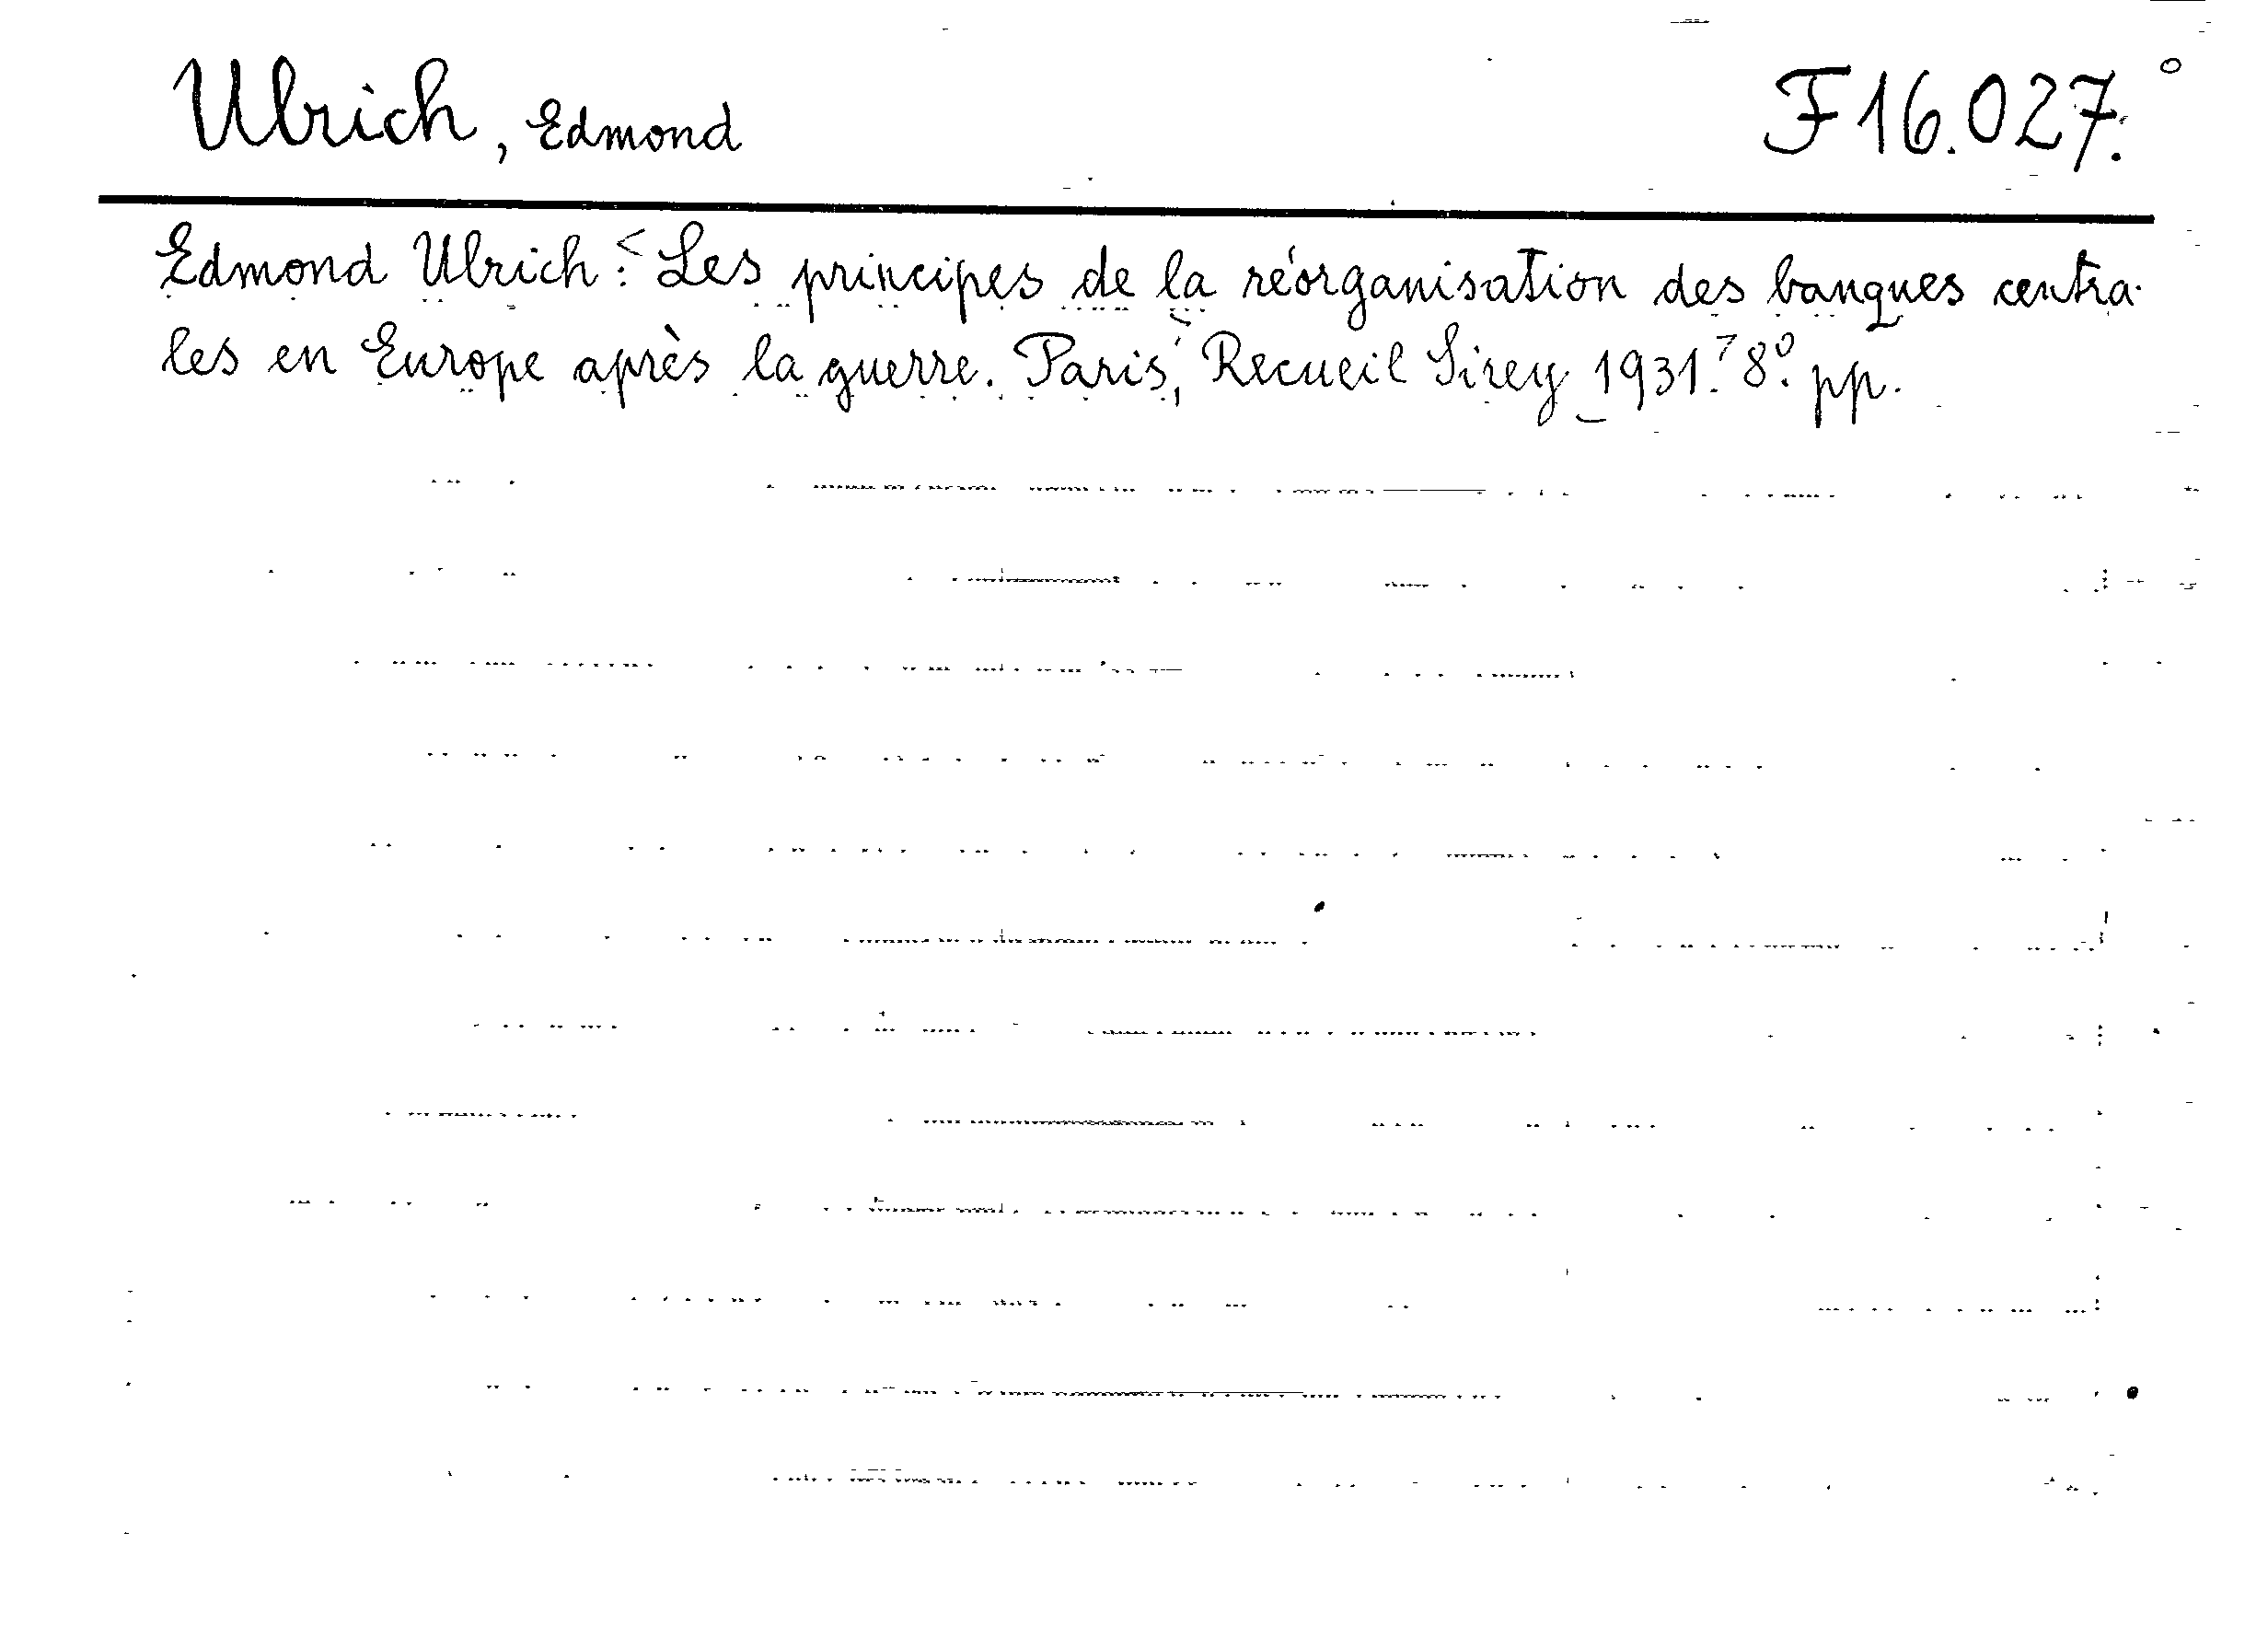 Ulrich, Edmond F 16.027.
Edmond Ulrich: Les principes de la réorganisation des banques centra-
les en Europe après la guerre. Paris, Recueil Sirey 1931. 8º. pp.